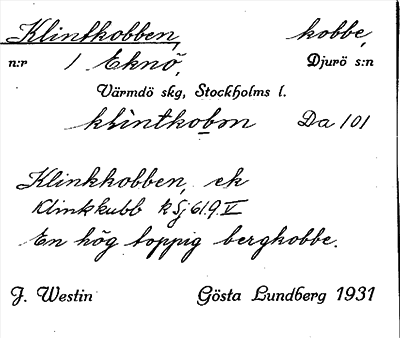 Klintkobben, kobbe,
n:r 1 Eknö, Djurö s:n
Värmdö skg, Stockholms l.
klintkobm Da 101
Klinkkobben, ek
Klinkkubb kSj 61.9.V
En hög toppig bergkobbe.
J. Westin Gösta Lundberg 1931